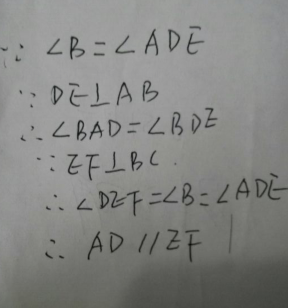 ∵ ∠B=∠ADE
∵ DE⊥AB
∴ ∠BAD=∠BDE
∵ EF⊥BC.
∴ ∠DEF=∠B=∠ADE
∴ AD//EF